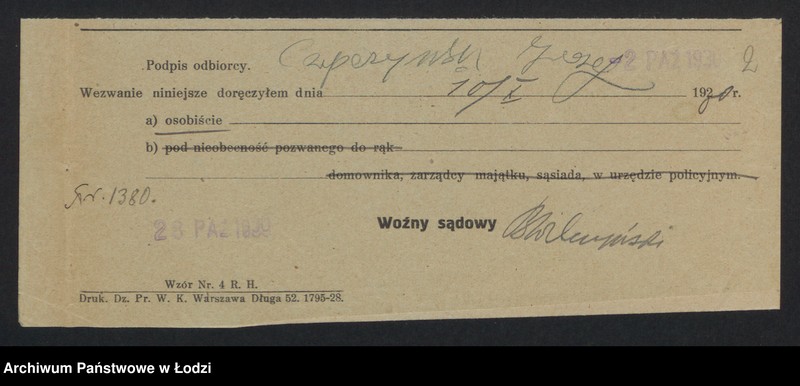 Podpis odbiorcy. Czepczyński Jerzy 2 PAŹ 1930 2
Wezwanie niniejsze doręczyłem dnia 10/X 1930 r.
a) osobiście
b) pod nieobecność pozwanego do rąk
domownika, zarządcy majątku, sąsiada, w urzędzie policyjnym.
Nr. 1380.
26 PAŹ 1930
Woźny sądowy
Wzór Nr. 4 R. H.
Druk. Dz. Pr. W. K. Warszawa Długa 52. 1795-28.
Archiwum Państwowe w Łodzi